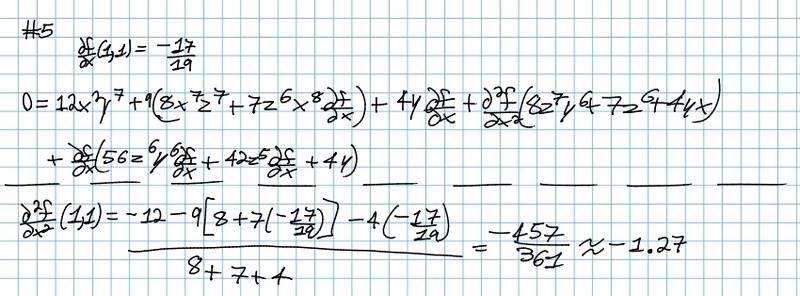 #5
∂f/∂x (1,1) = -17/19
0 = 12x²y⁷ + 9(8x⁷z⁷ + 7z⁶x⁸ ∂f/∂x) + 4y ∂f/∂x + ∂²f/∂x² (8z⁷y⁶ + 7z⁶ + 4yx)
+ ∂f/∂x (56z⁶y⁶ ∂f/∂x + 42z⁵ ∂f/∂x + 4y)
∂²f/∂x² (1,1) = (-12 - 9[8 + 7(-17/19)] - 4(-17/19)) / (8 + 7 + 4) = -457/361 ≈ -1.27